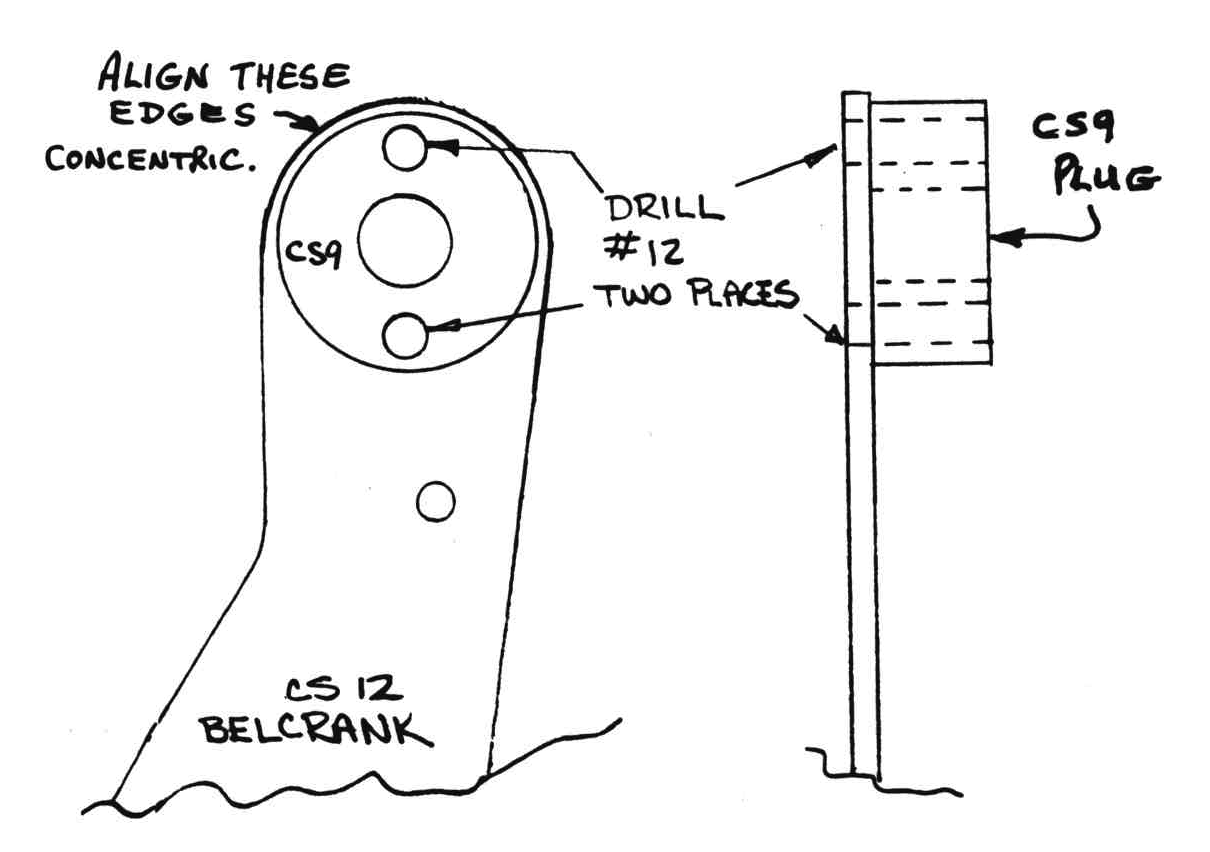 ALIGN THESE
EDGES
CONCENTRIC.
CS9
DRILL
#12
TWO PLACES
CS9
PLUG
CS 12
BELCRANK